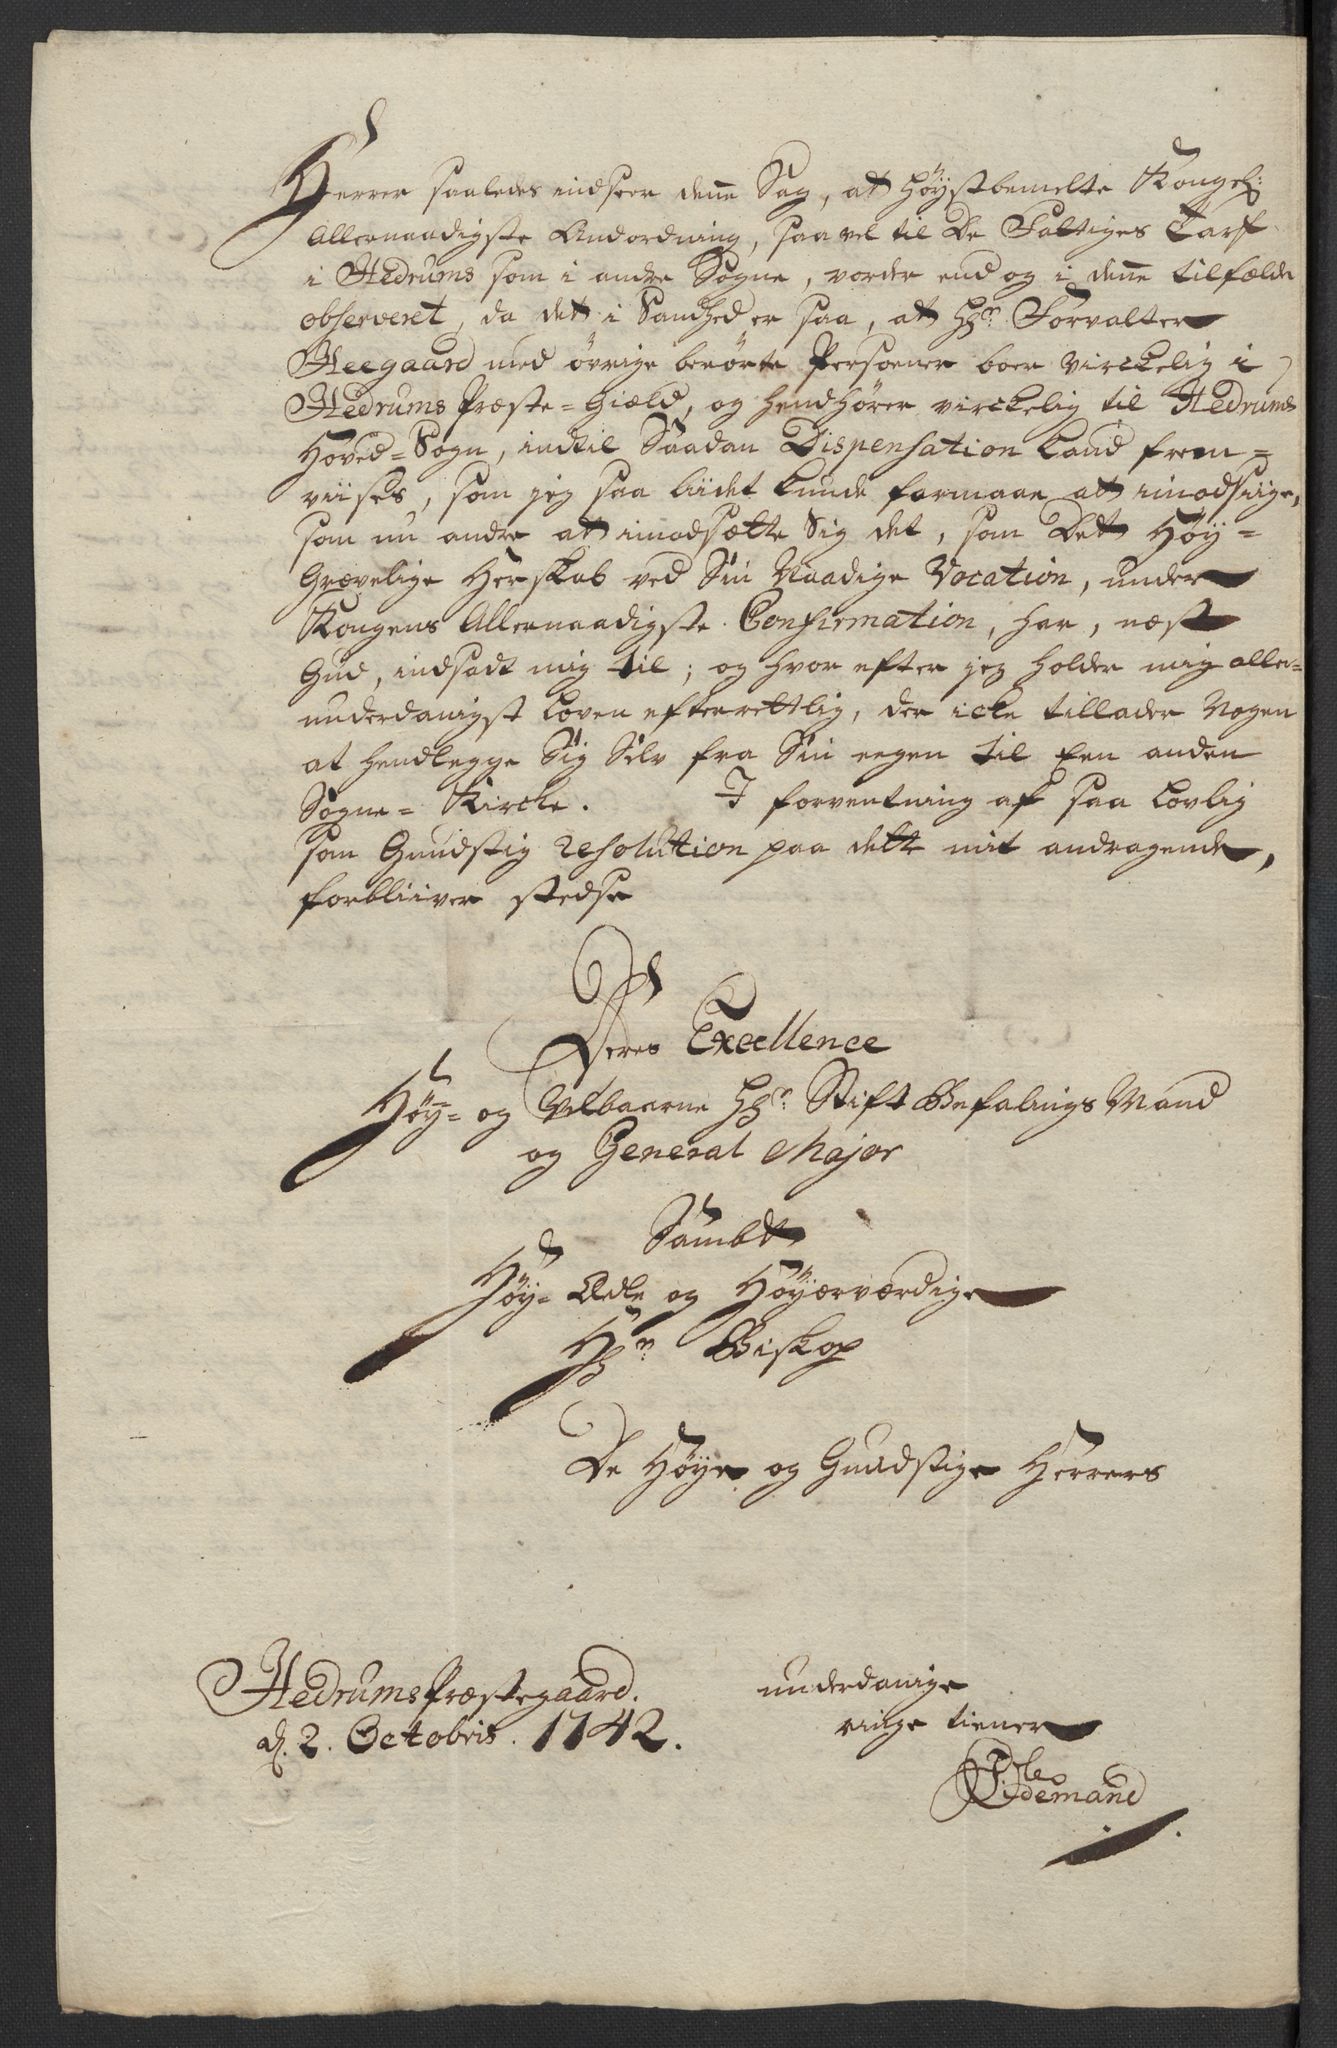 Herrer saaledes indseer denne Sag, at Høystbemelte Kongel:
Allernaadigste Andordning, saa vel til De Fattiges Tarf
i Hedrums som i andre Sogne, vorder end og i denne tilfælde
observeret, da det i Sandhed er saa, at Hr. Forvalter
Heegaard med øvrige berørte Persoener boer virckelig i
Hedrums Præste-Giæld, og henhører virckelig til Hedrums
Hoved-Sogn, indtil Saadan Dispensation kand frem-
viises, som jeg saa liidet kunde formaae at imodsiige,
som nu andre at imodsætte Sig det, som Det Høy-
Grævelige Herskab ved Sin Naadige Vocation, under
Kongens Allernaadigste Confirmation, har, næst
Gud, indsadt mig til; og hvor efter jeg holder mig aller-
underdanigst Loven efterrettlig, der icke tillader Nogen
at hendlegge Sig Selv fra Sin eegen til Een anden
Sogne-Kircke. I forventning af saa lovlig
som Gunstig resolution paa dette mit andragende,
forbliiver stedse
Deres Excellence
Høy- og Velbaarne Hr. Stift Befalings Mand
og General Major
Sambt
Høy-Ædle og Høyærværdige
Hr. Biskop
De Høye og Gunstige Herrers
Hedrums Præstegaard.
d. 2. Octobris. 1742.
underdanige
ringe tiener
Tidemand